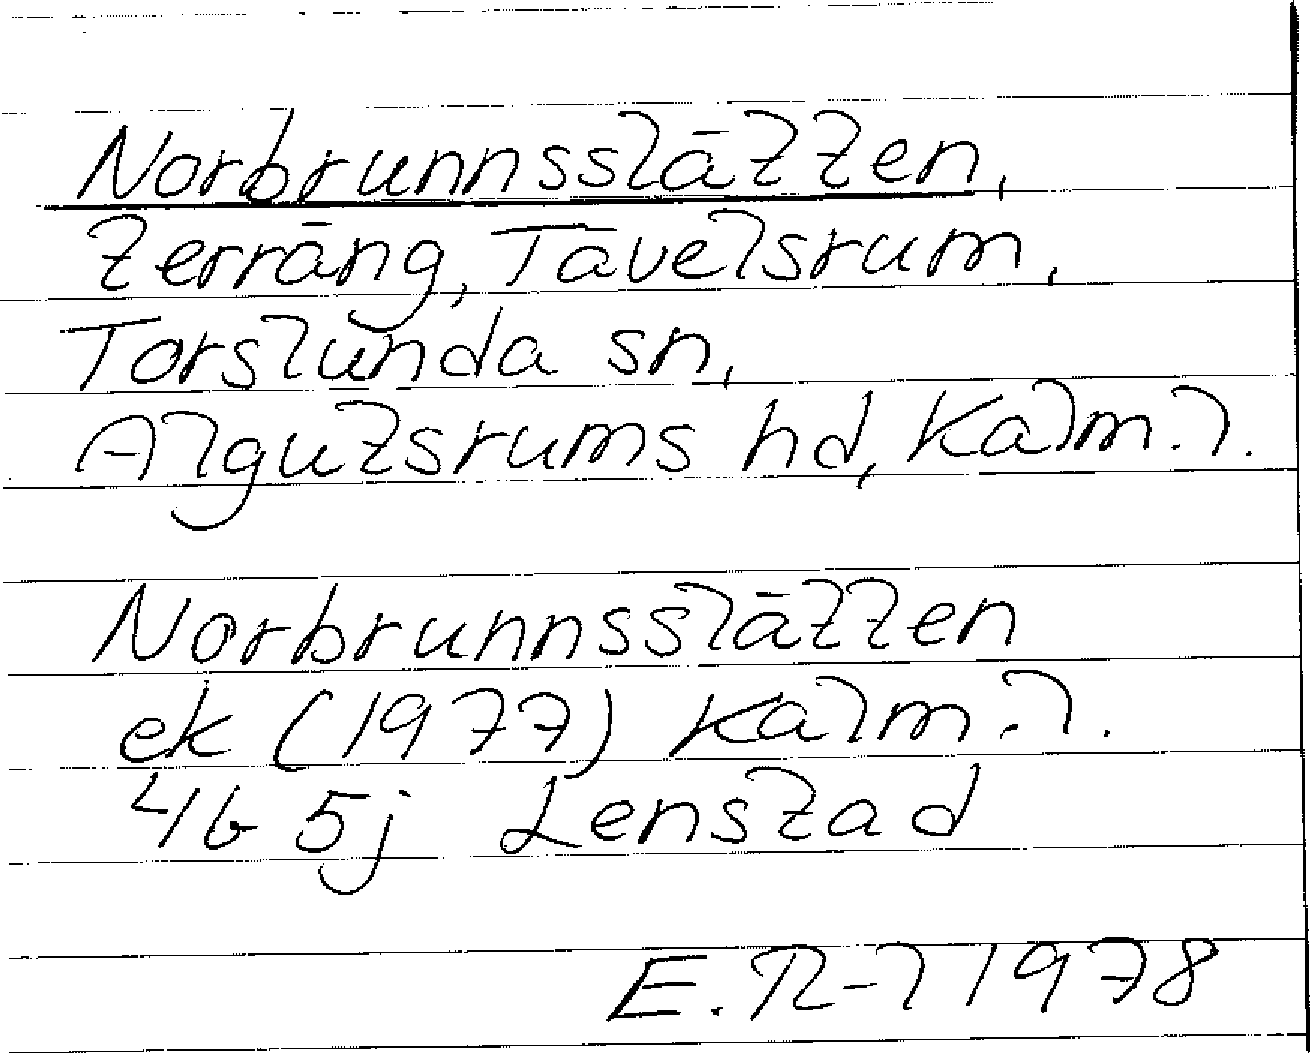 Norbrunnsslätten,
terräng, Tävelsrum,
Torslunda sn,
Algutsrums hd, Kalm. l.
Norbrunnsslätten
ek (1977) Kalm. l.
4G 5j Lenstad
E. R-l 1978